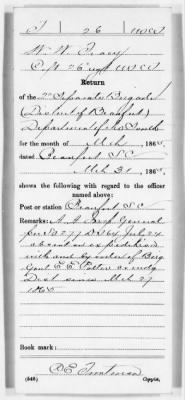 T 26 USCT
W. W. Tracy
Capt 26 Regt USCT
Return
of the 2nd Separate Brigade
(District of Beaufort)
Department of the South
for the month of Mch, 1865,
dated Beaufort S.C.
Mch 31, 1865.
shows the following with regard to the officer
named above:
Post or station Beaufort S.C.
Remarks: A. A. Insp General
per S.O. 277 D.S. /64 July 24
absent on expedition
with and by order of Brig
Genl E. E. Potter comdg
Dist since Mch 27
1865
Book mark:
(548)
Copyist.